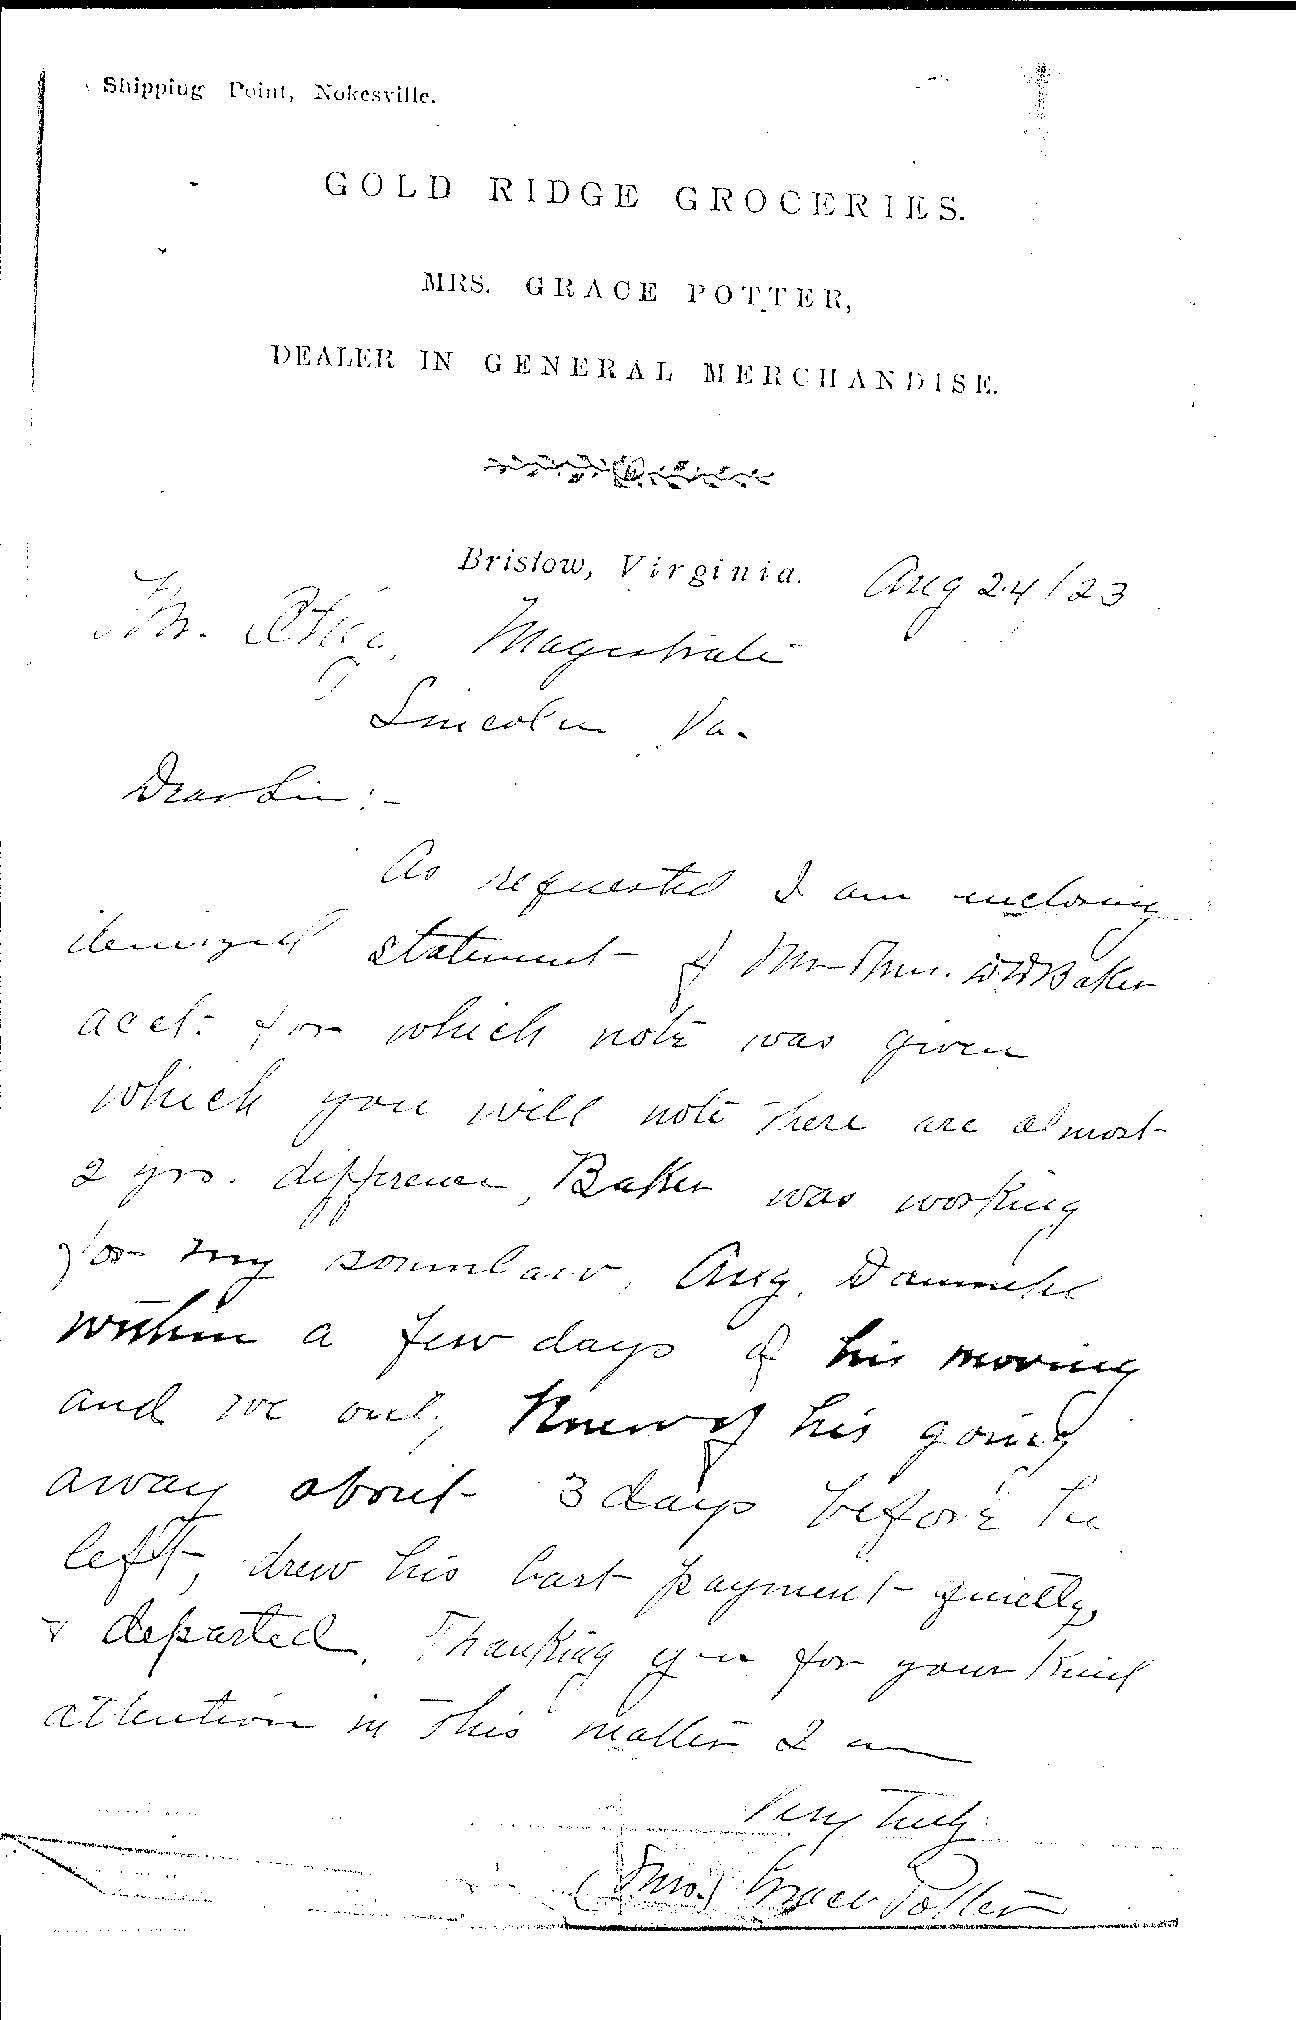 Shipping Point, Nokesville.
GOLD RIDGE GROCERIES.
MRS. GRACE POTTER,
DEALER IN GENERAL MERCHANDISE.
Bristow, Virginia. Aug 24/23
Mr. Magistrate
Lincoln Va.
Dear Sir:-
As requested I am enclosing
itemized statement of Mr & Mrs. W W Baker
acct. for which note was given
which you will note there are almost
2 yrs. difference, Baker was working
for my soninlaw, Aug.
within a few days of his moving
and we only knew of his going
away about 3 days before he
left, drew his last payment quietly,
& departed. Thanking you for your kind
attention in this matter I am
Very Truly
(Mrs.) Grace Potter